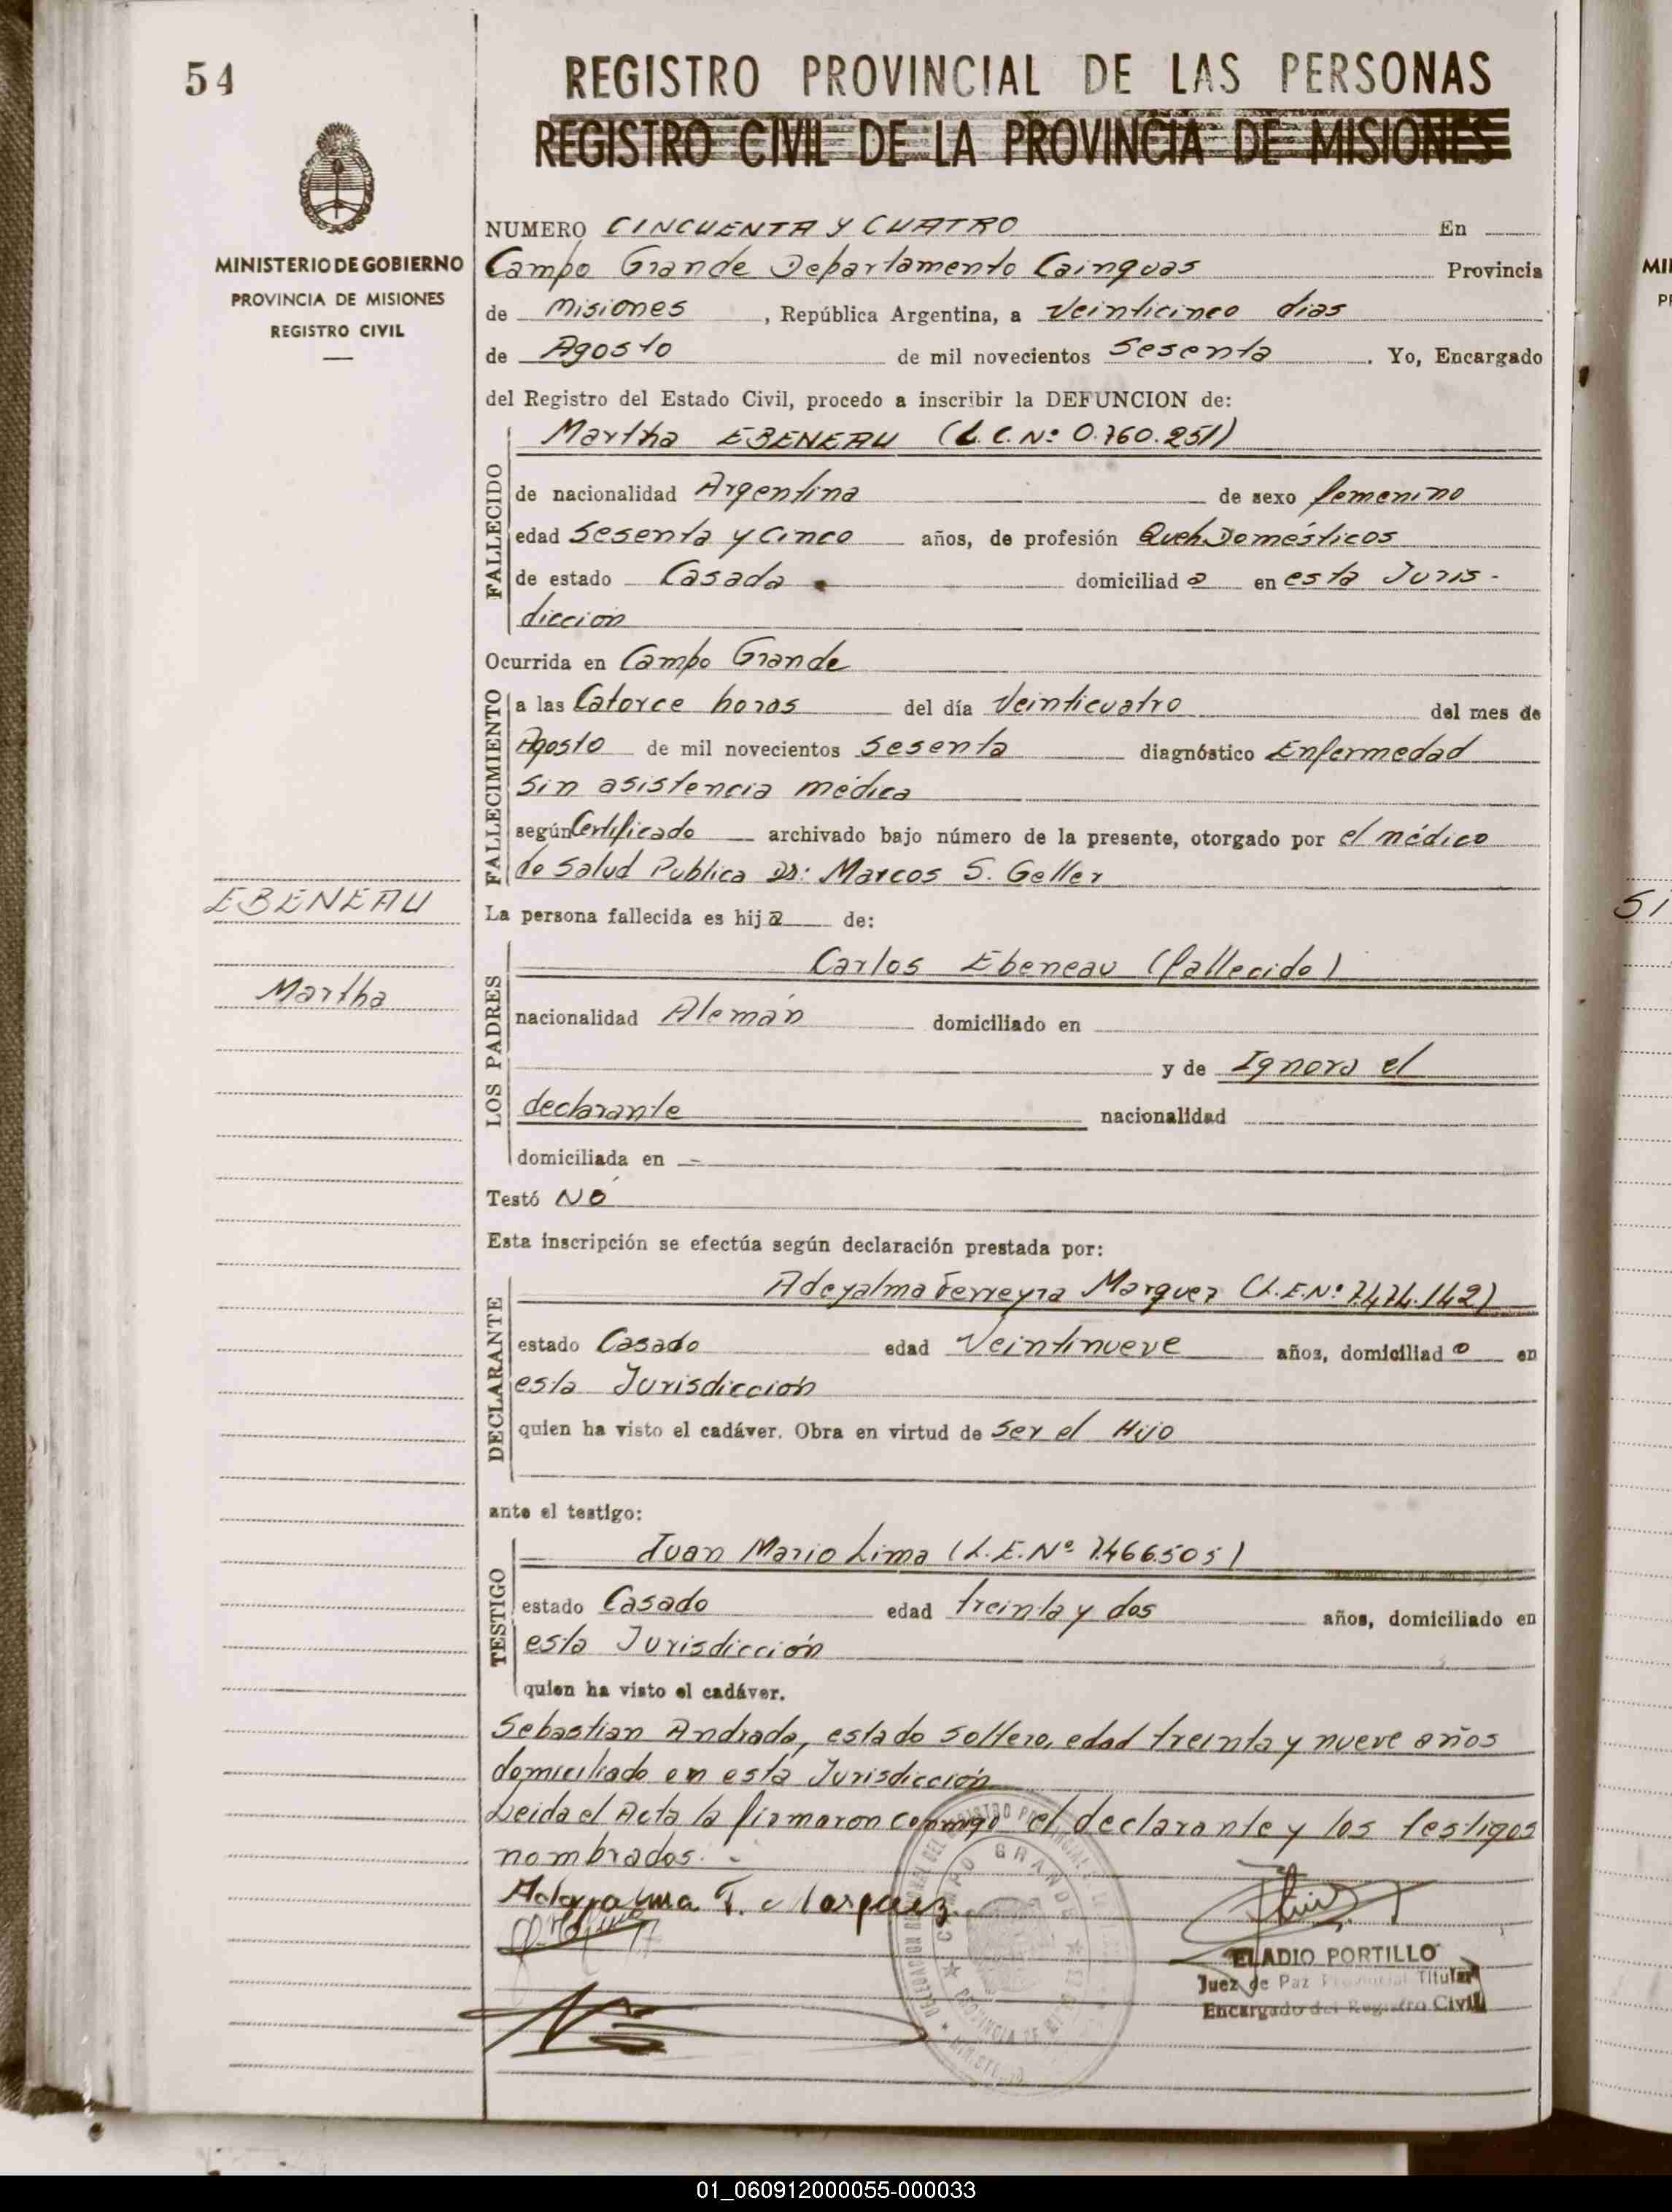 54
REGISTRO PROVINCIAL DE LAS PERSONAS
REGISTRO CIVIL DE LA PROVINCIA DE MISIONES
MINISTERIO DE GOBIERNO
PROVINCIA DE MISIONES
REGISTRO CIVIL
NUMERO CINCUENTA Y CUATRO En
Campo Grande Departamento Cainguas Provincia
de Misiones , República Argentina, a Veinticinco dias
de Agosto de mil novecientos Sesenta . Yo, Encargado
del Registro del Estado Civil, procedo a inscribir la DEFUNCION de:
FALLECIDO
Martha EBENEAU (L.C.Nº 0.760.251)
de nacionalidad Argentina de sexo femenino
edad Sesenta y Cinco años, de profesión Queh. Domésticos
de estado Casada domiciliad a en esta Juris-
diccion
Ocurrida en Campo Grande
FALLECIMIENTO
a las Catorce horas del día Veinticuatro del mes de
Agosto de mil novecientos Sesenta diagnóstico Enfermedad
Sin asistencia médica
según Certificado archivado bajo número de la presente, otorgado por el médico
de Salud Publica Dr: Marcos S. Geller
EBENEAU
Martha
La persona fallecida es hij a de:
LOS PADRES
Carlos Ebeneau (fallecido)
nacionalidad Alemán domiciliado en
y de Ignora el
declarante nacionalidad
domiciliada en -
Testó NO
Esta inscripción se efectúa según declaración prestada por:
DECLARANTE
Adeyalma Ferreyra Marquez (L.E.Nº 7.474.142)
estado Casado edad Veintinueve años, domiciliad o en
esta Jurisdicción
quien ha visto el cadáver. Obra en virtud de Ser el Hijo
ante el testigo:
TESTIGO
Juan Mario Lima (L.E.Nº 7.466.505)
estado Casado edad treinta y dos años, domiciliado en
esta Jurisdicción
quien ha visto el cadáver.
Sebastian Andrada, estado Soltero, edad treinta y nueve años
domiciliado en esta Jurisdicción
Leida el Acta la firmaron conmigo el declarante y los testigos
nombrados. -
F. Marquez
CAMPO GRANDE
ELADIO PORTILLO
Juez de Paz Provincial Titular
Encargado del Registro Civil
MI
P
SI
01_060912000055-000033